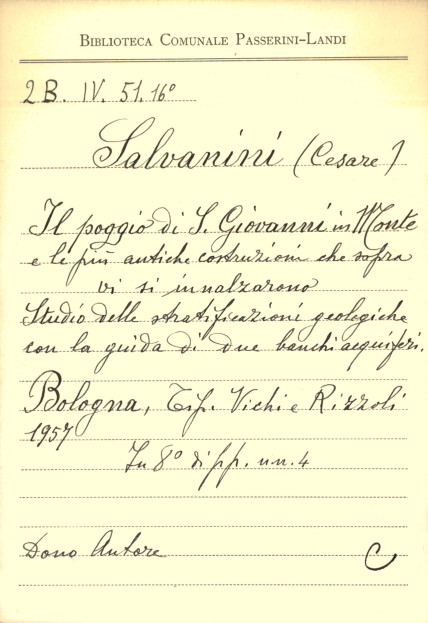 BIBLIOTECA COMUNALE PASSERINI-LANDI
2B. IV. 51. 16°
Salvanini (Cesare)
Il poggio di S. Giovanni in Monte
e le più antiche costruzioni che sopra
vi si innalzarono
Studio delle stratificazioni geologiche
con la guida di due banchi acquiferi.
Bologna, Tip. Vichi e Rizzoli
1957
In 8° di pp. nn. 4
Dono Autore
C